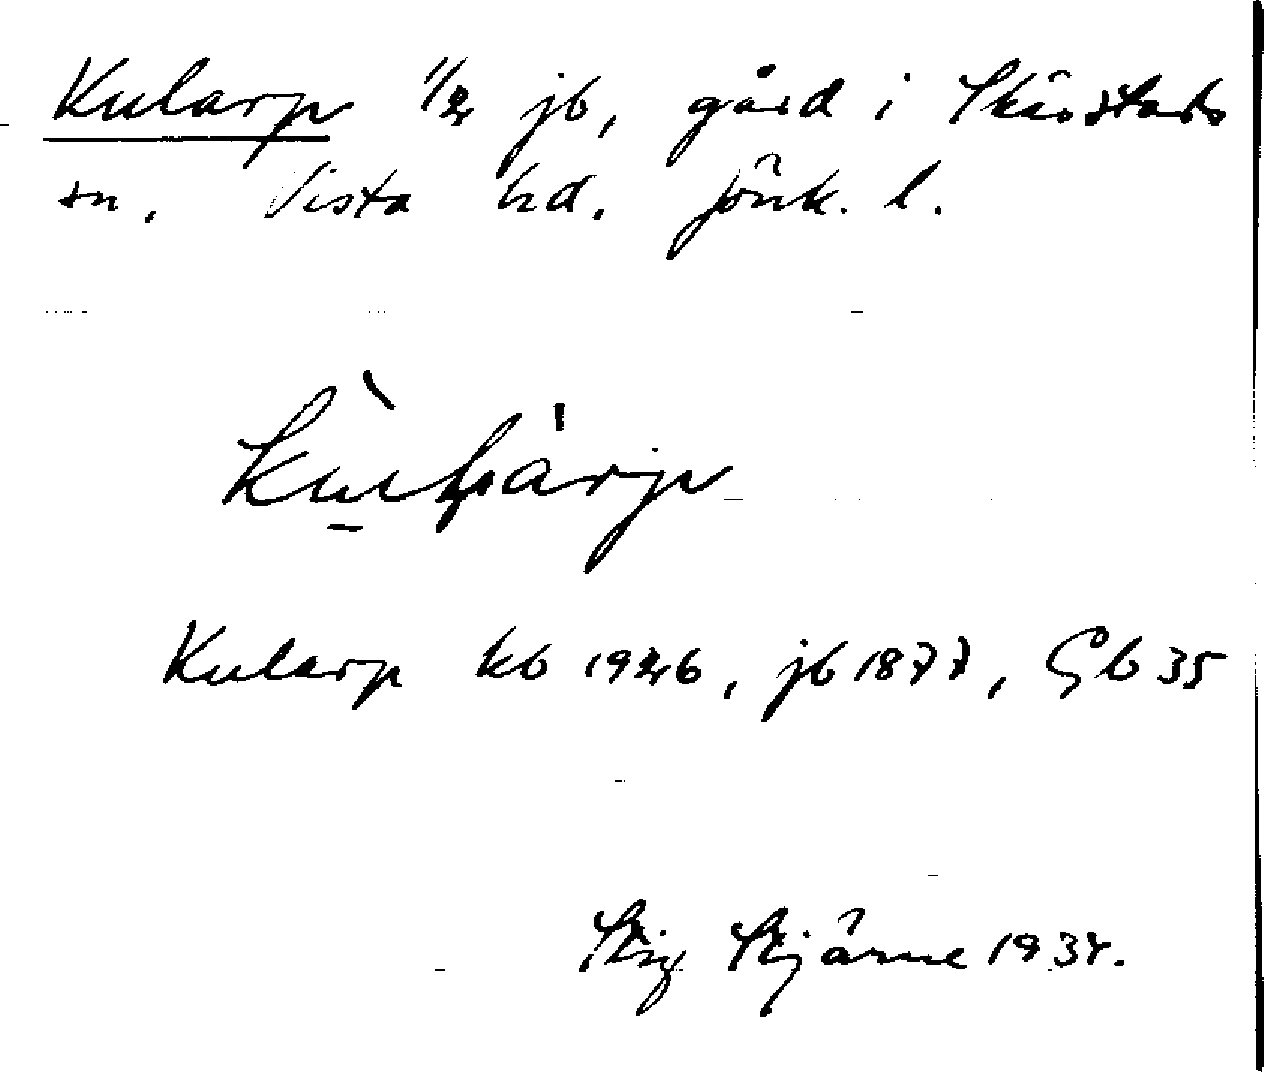 Kularp 1/2 jb, gård i Skärstads
sn. Vista hd. Jönk. l.
Kularp kb 1926, jb 1877, Gb 35
Stig Stjärne 1934.